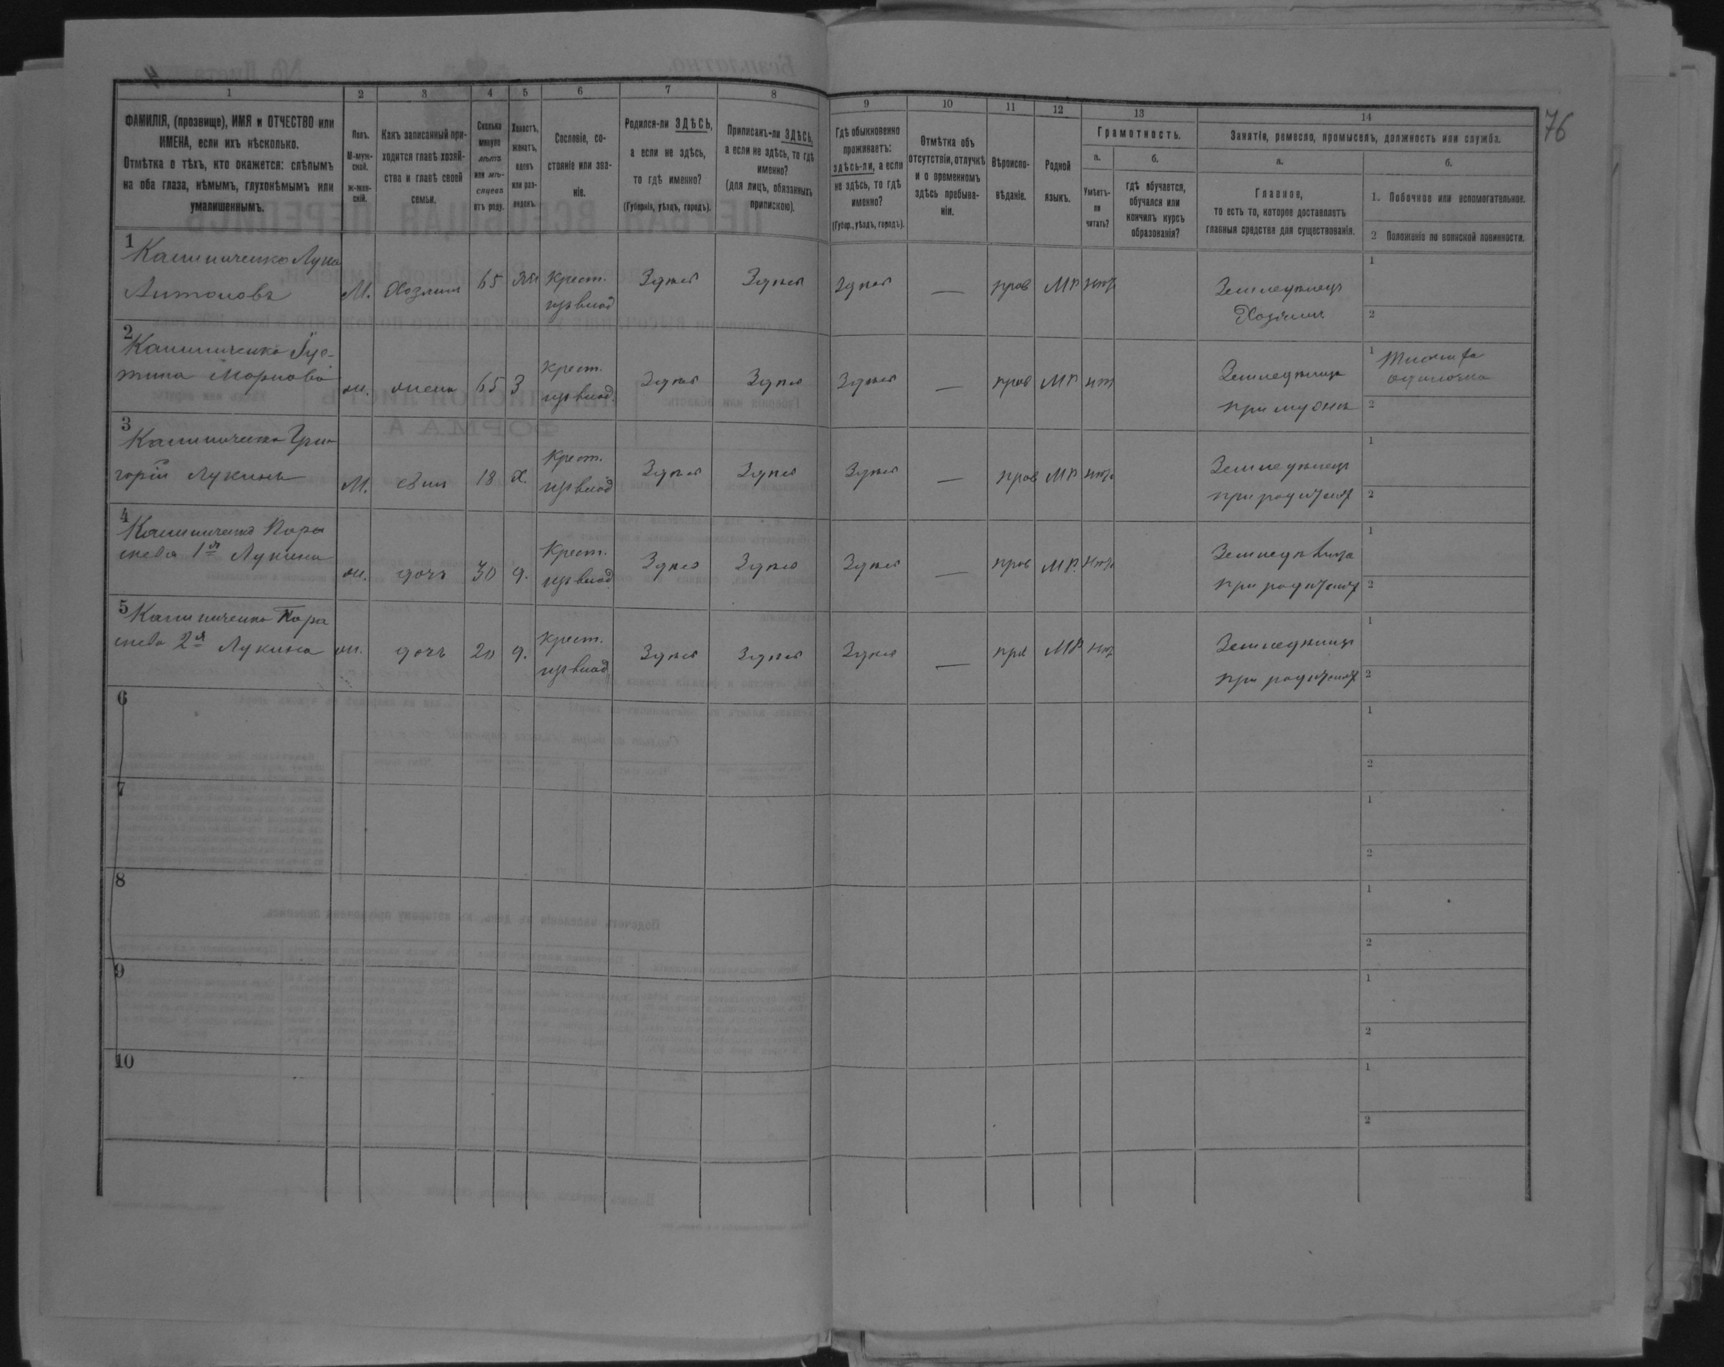 4
76
1
2
3
4
5
6
7
8
9
10
11
12
13
14
ФАМИЛІЯ, (прозвище), ИМЯ и ОТЧЕСТВО или
ИМЕНА, если ихъ нѣсколько.
Отмѣтка о тѣхъ, кто окажется: слѣпымъ
на оба глаза, нѣмымъ, глухонѣмымъ или
умалишеннымъ.
Полъ.
М-муж-
ской.
ж-жен-
скій.
Какъ записанный при-
ходится главѣ хозяй-
ства и главѣ своей
семьи.
Сколько
минуло
лѣтъ
или мѣ-
сяцевъ
отъ роду.
Холостъ,
женатъ,
вдовъ
или раз-
веденъ.
Сословіе, со-
стояніе или зва-
ніе.
Родился-ли ЗДѢСЬ,
а если не здѣсь,
то гдѣ именно?
(Губернія, уѣздъ, городъ).
Приписанъ-ли ЗДѢСЬ,
а если не здѣсь, то гдѣ
именно?
(для лицъ, обязанныхъ
припискою).
Гдѣ обыкновенно
проживаетъ:
здѣсь-ли, а если
не здѣсь, то гдѣ
именно?
(Губер., уѣздъ, городъ).
Отмѣтка объ
отсутствіи, отлучкѣ
и о временномъ
здѣсь пребыва-
ніи.
Вѣроиспо-
вѣданіе.
Родной
языкъ.
Грамотность.
а.
Умѣетъ-
ли
читать?
б.
гдѣ обучается,
обучался или
кончилъ курсъ
образованія?
Занятіе, ремесло, промыселъ, должность или служба.
а.
Главное,
то есть то, которое доставляетъ
главныя средства для существованія.
б.
1. Побочное или вспомогательное.
2 Положеніе по воинской повинности.
1
Калиниченко Лука
Антоновъ
М. Хозяинъ 65 Крест. Здѣсь Здѣсь Здѣсь — прав МР нѣт Земледѣлецъ
Хозяинъ
1
2
2
Калиниченко
ж. жена 65 З Крест. Здѣсь Здѣсь Здѣсь — прав МР нѣт Земледѣлица
при мужѣ
1
2
3
Калиниченко Гри
горій Лукинъ
М. сынъ 18 Х Крест. Здѣсь Здѣсь Здѣсь — прав МР нѣт Земледѣлецъ
при родителях
1
2
4
Калиниченко Пара
скева 1я Лукина
ж. дочь 30 д. Крест. Здѣсь Здѣсь Здѣсь — прав МР. нѣт Земледѣлица
при родителях
1
2
5
Калиниченко Пара
скева 2я Лукина
ж. дочь 20 д. Крест. Здѣсь Здѣсь Здѣсь — прав МР нѣт Земледѣлица
при родителях
1
2
6
1
2
7
1
2
8
1
2
9
1
2
10
1
2